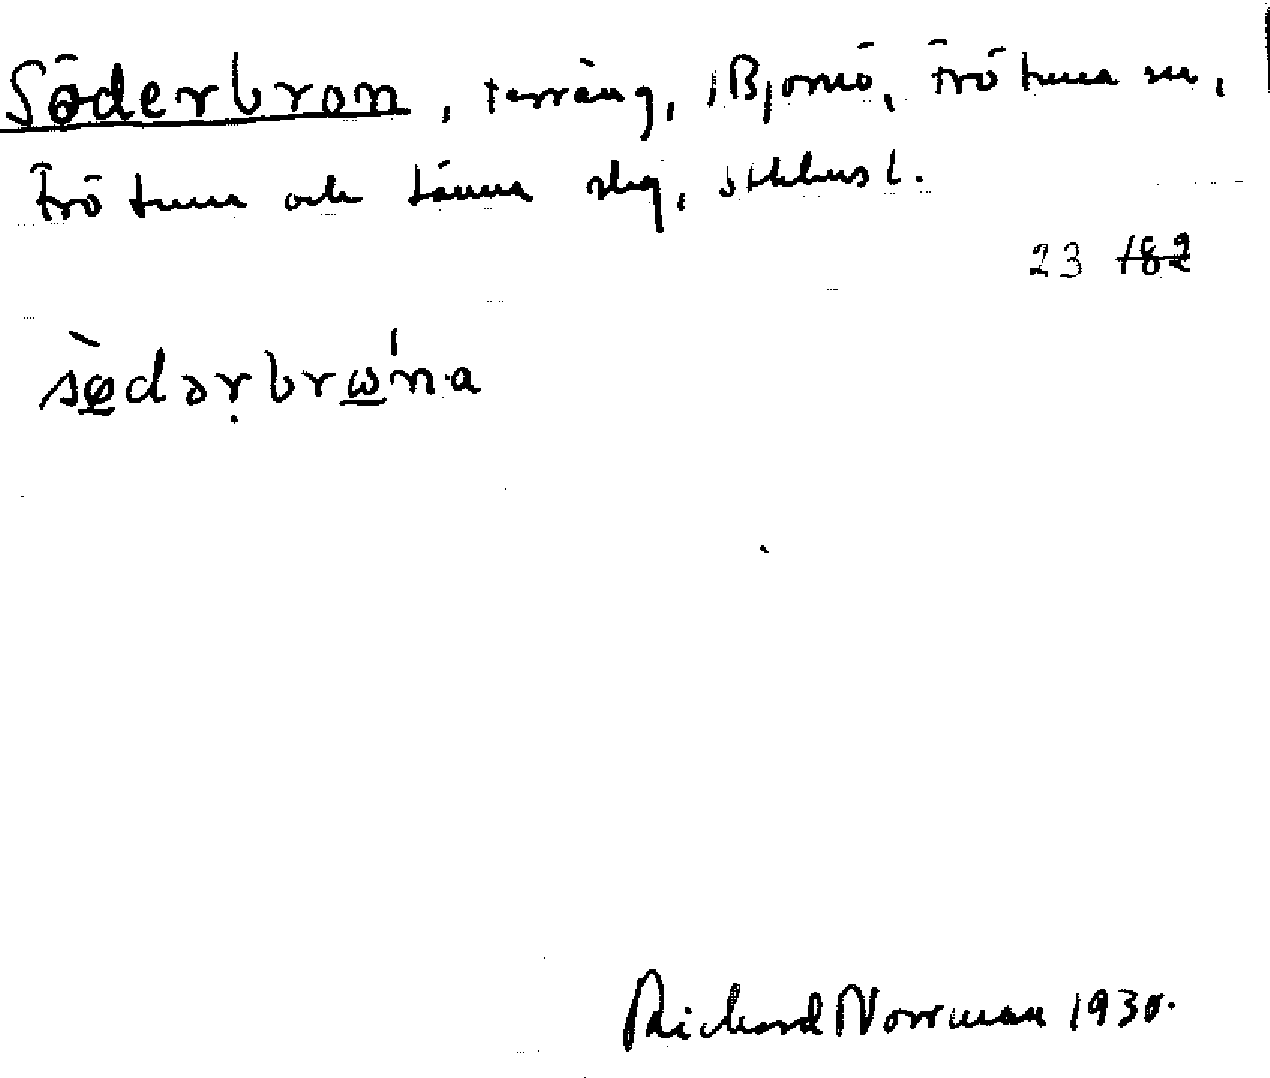 Söderbron, terräng, i Björnö, Frötuna sn,
Frötuna och Länna slg, Sthlms l.
23 182
sø̀dərbrω'na
Richard Norrman 1930.